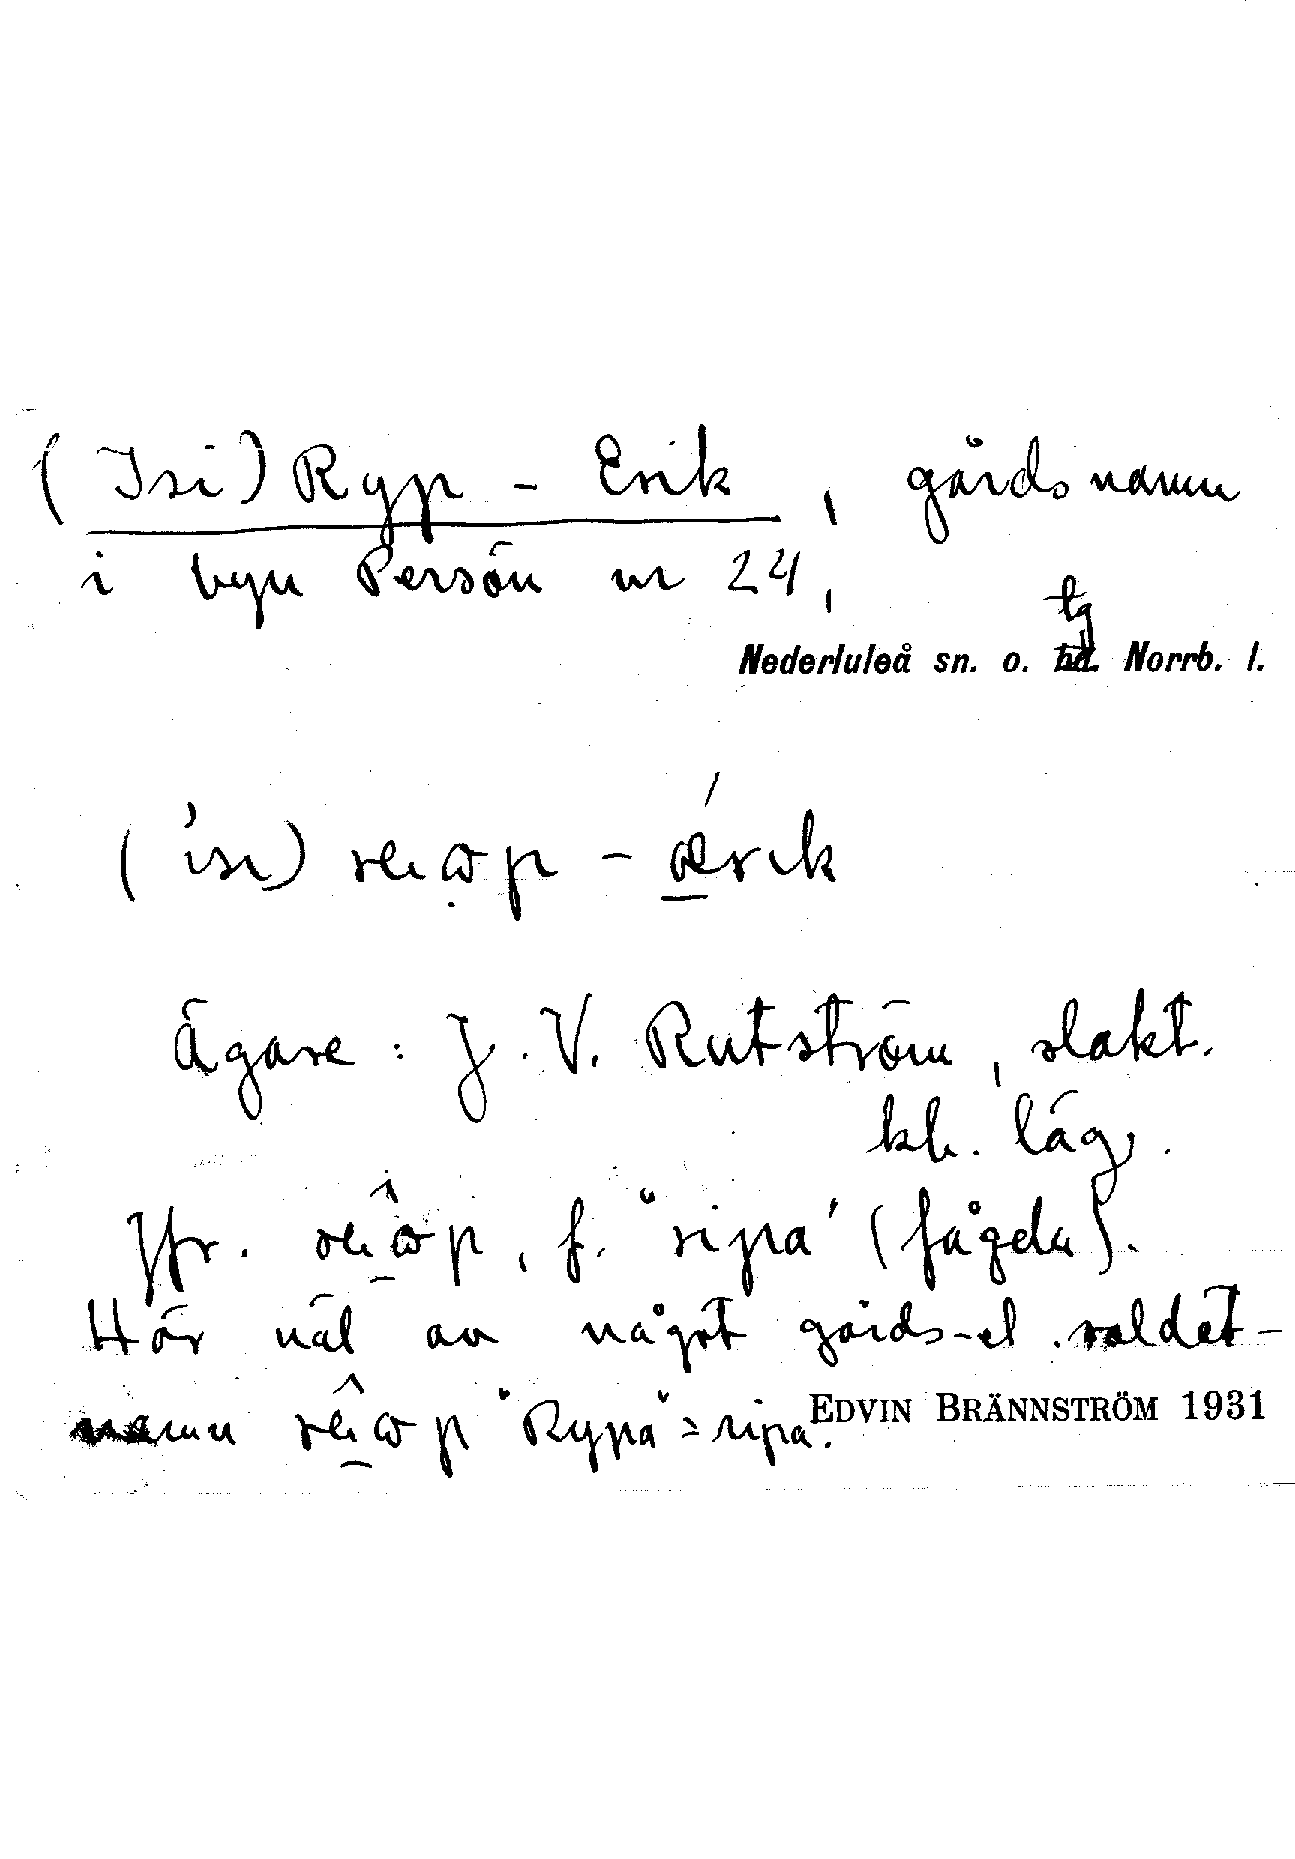 (Isi) Ryp - Erik, gårdsnamn
i byn Persön nr 24,
tg
Nederluleå sn. o. hd. Norrb. l.
Ägare: J. V. Rutström, slakt.
kh. läg.
Jfr. f. "ripa" (fågeln).
Här väl av något gårds- el. soldat-
namn "Rypa" = ripa.
EDVIN BRÄNNSTRÖM 1931